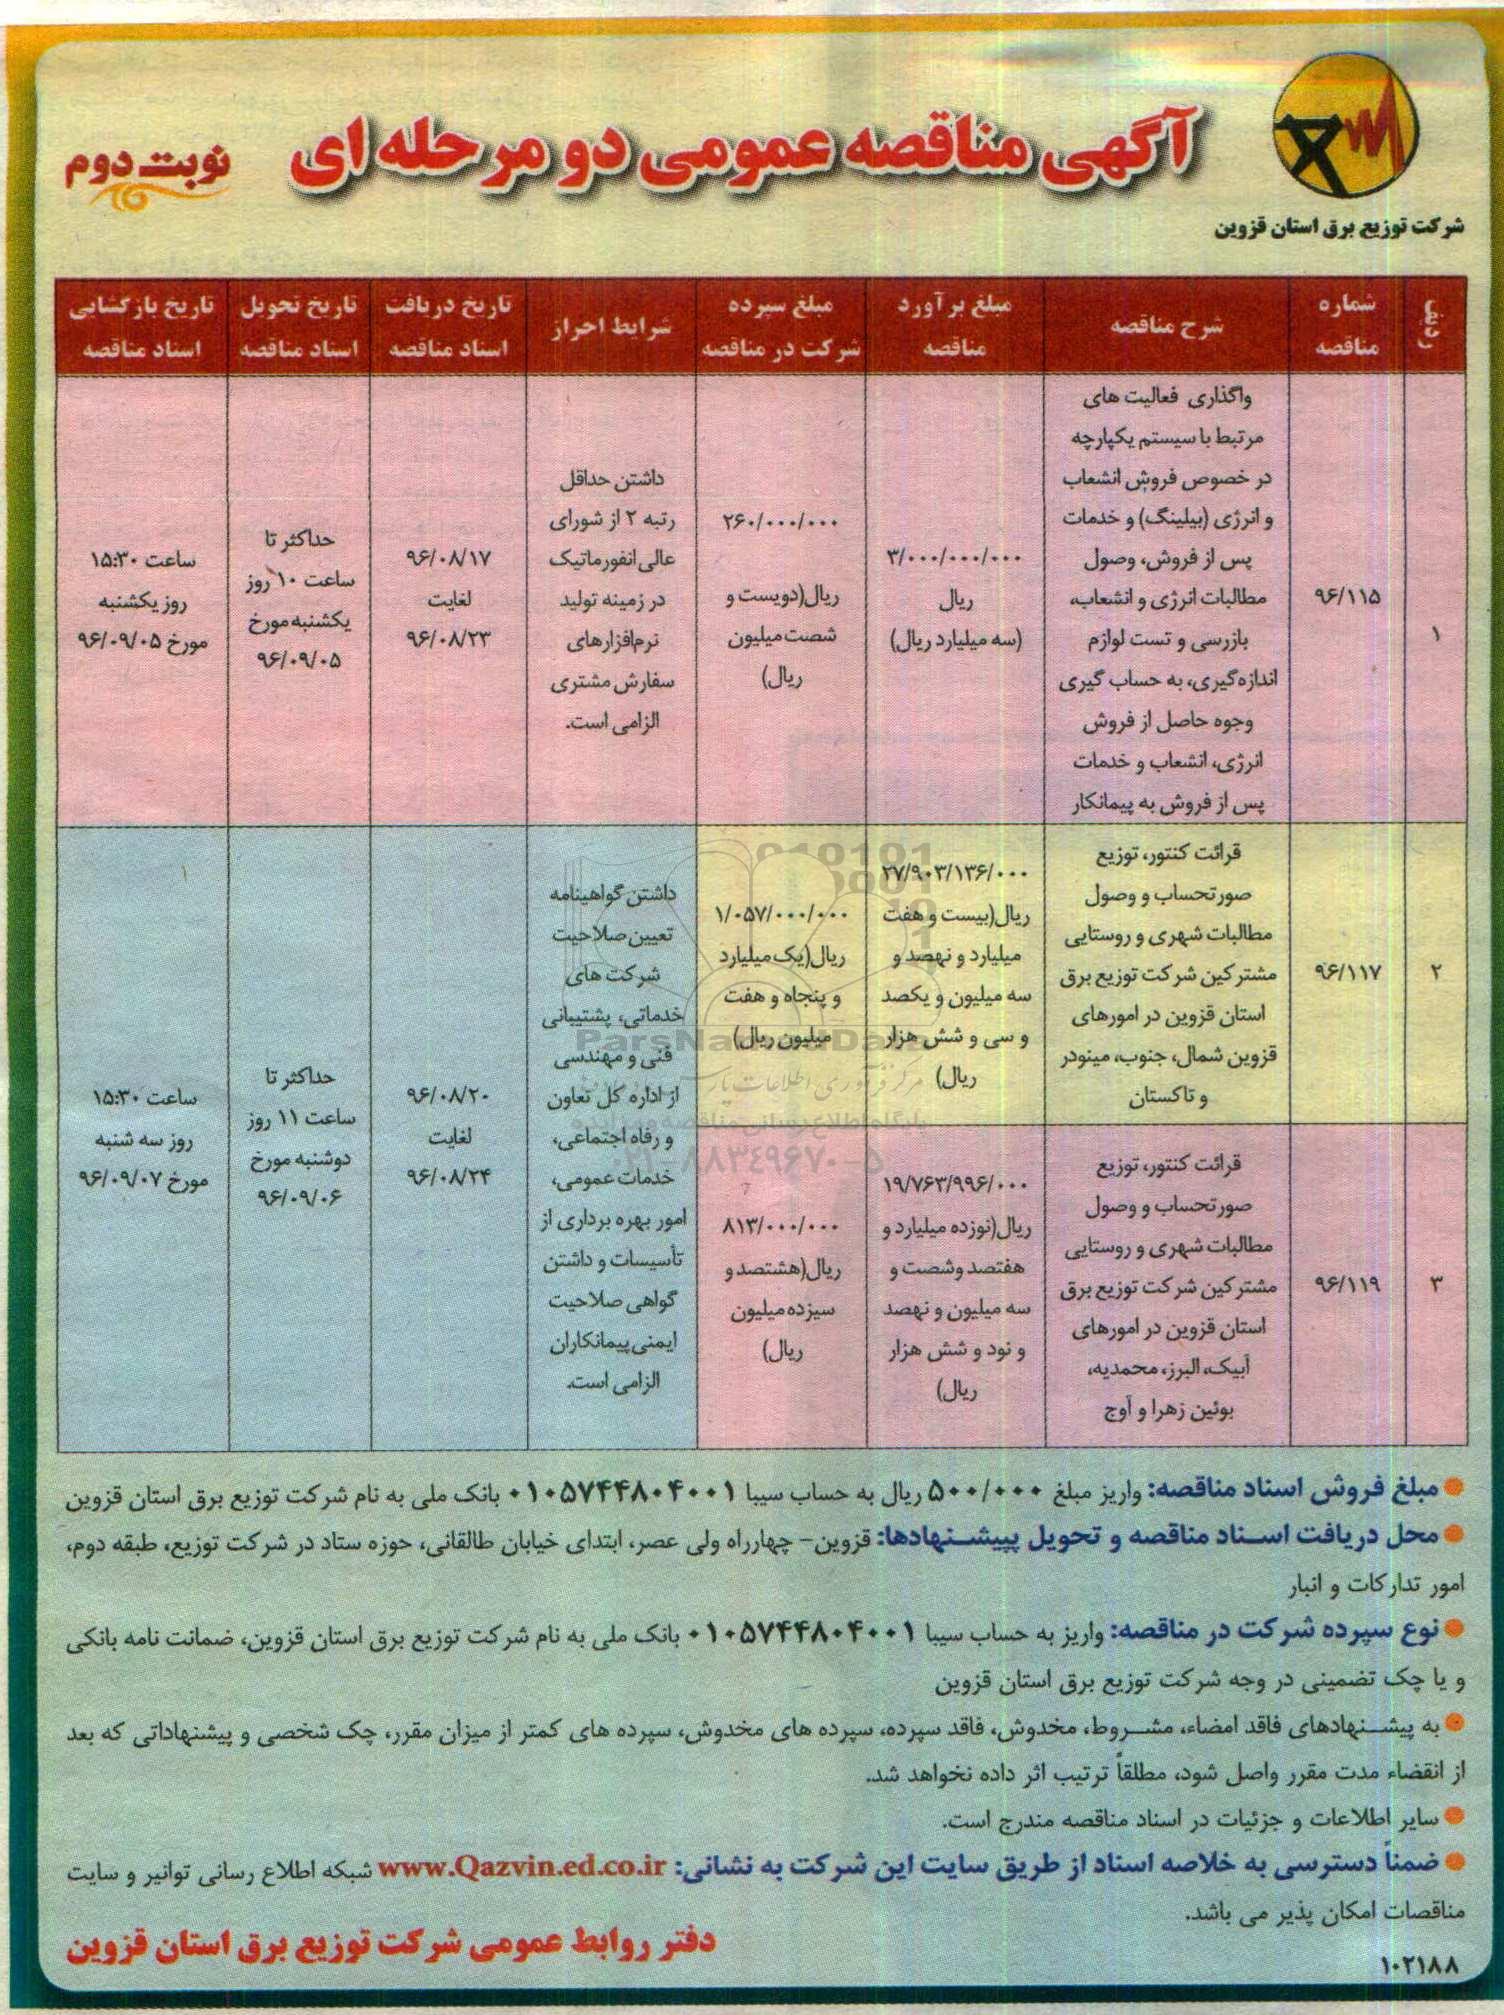 آگهی مناقصه عمومی دو مرحله ای
نوبت دوم
شرکت توزیع برق استان قزوین
ردیف
شماره
مناقصه
شرح مناقصه
مبلغ برآورد
مناقصه
مبلغ سپرده
شرکت در مناقصه
شرایط احراز
تاریخ دریافت
اسناد مناقصه
تاریخ تحویل
اسناد مناقصه
تاریخ بازگشایی
اسناد مناقصه
۱
۹۶/۱۱۵
واگذاری فعالیت های
مرتبط با سیستم یکپارچه
در خصوص فروش انشعاب
و انرژی (بیلینگ) و خدمات
پس از فروش، وصول
مطالبات انرژی و انشعاب،
بازرسی و تست لوازم
اندازه‌گیری، به حساب گیری
وجوه حاصل از فروش
انرژی، انشعاب و خدمات
پس از فروش به پیمانکار
۳/۰۰۰/۰۰۰/۰۰۰
ریال
(سه میلیارد ریال)
۲۶۰/۰۰۰/۰۰۰
ریال(دویست و
شصت میلیون
ریال)
داشتن حداقل
رتبه ۲ از شورای
عالی انفورماتیک
در زمینه تولید
نرم‌افزارهای
سفارش مشتری
الزامی است.
۹۶/۰۸/۱۷
لغایت
۹۶/۰۸/۲۳
حداکثر تا
ساعت ۱۰ روز
یکشنبه مورخ
۹۶/۰۹/۰۵
ساعت ۱۵:۳۰
روز یکشنبه
مورخ ۹۶/۰۹/۰۵
۲
۹۶/۱۱۷
قرائت کنتور، توزیع
صورتحساب و وصول
مطالبات شهری و روستایی
مشترکین شرکت توزیع برق
استان قزوین در امورهای
قزوین شمال، جنوب، مینودر
و تاکستان
۲۷/۹۰۳/۱۳۶/۰۰۰
ریال(بیست و هفت
میلیارد و نهصد و
سه میلیون و یکصد
و سی و شش هزار
ریال)
۱/۰۵۷/۰۰۰/۰۰۰
ریال(یک میلیارد
و پنجاه و هفت
میلیون ریال)
داشتن گواهینامه
تعیین صلاحیت
شرکت های
خدماتی، پشتیبانی
فنی و مهندسی
از اداره کل تعاون
و رفاه اجتماعی،
خدمات عمومی،
امور بهره برداری از
تأسیسات و داشتن
گواهی صلاحیت
ایمنی پیمانکاران
الزامی است.
۹۶/۰۸/۲۰
لغایت
۹۶/۰۸/۲۴
حداکثر تا
ساعت ۱۱ روز
دوشنبه مورخ
۹۶/۰۹/۰۶
ساعت ۱۵:۳۰
روز سه شنبه
مورخ ۹۶/۰۹/۰۷
۳
۹۶/۱۱۹
قرائت کنتور، توزیع
صورتحساب و وصول
مطالبات شهری و روستایی
مشترکین شرکت توزیع برق
استان قزوین در امورهای
آبیک، البرز، محمدیه،
بوئین زهرا و آوج
۱۹/۷۶۳/۹۹۶/۰۰۰
ریال(نوزده میلیارد و
هفتصد وشصت و
سه میلیون و نهصد
و نود و شش هزار
ریال)
۸۱۳/۰۰۰/۰۰۰
ریال(هشتصد و
سیزده میلیون
ریال)
ParsNamadData
مرکز فرآوری اطلاعات پارس
پایگاه اطلاع رسانی مناقصه
۰۲۱-۸۸۳۴۹۶۷۰-۵
مبلغ فروش اسناد مناقصه: واریز مبلغ ۵۰۰/۰۰۰ ریال به حساب سیبا ۰۱۰۵۷۴۴۸۰۴۰۰۱ بانک ملی به نام شرکت توزیع برق استان قزوین
محل دریافت اسناد مناقصه و تحویل پیشنهادها: قزوین- چهارراه ولی عصر، ابتدای خیابان طالقانی، حوزه ستاد در شرکت توزیع، طبقه دوم،
امور تدارکات و انبار
نوع سپرده شرکت در مناقصه: واریز به حساب سیبا ۰۱۰۵۷۴۴۸۰۴۰۰۱ بانک ملی به نام شرکت توزیع برق استان قزوین، ضمانت نامه بانکی
و یا چک تضمینی در وجه شرکت توزیع برق استان قزوین
به پیشنهادهای فاقد امضاء، مشروط، مخدوش، فاقد سپرده، سپرده های مخدوش، سپرده های کمتر از میزان مقرر، چک شخصی و پیشنهاداتی که بعد
از انقضاء مدت مقرر واصل شود، مطلقاً ترتیب اثر داده نخواهد شد.
سایر اطلاعات و جزئیات در اسناد مناقصه مندرج است.
ضمناً دسترسی به خلاصه اسناد از طریق سایت این شرکت به نشانی: www.Qazvin.ed.co.ir شبکه اطلاع رسانی توانیر و سایت
مناقصات امکان پذیر می باشد.
دفتر روابط عمومی شرکت توزیع برق استان قزوین
۱۰۲۱۸۸